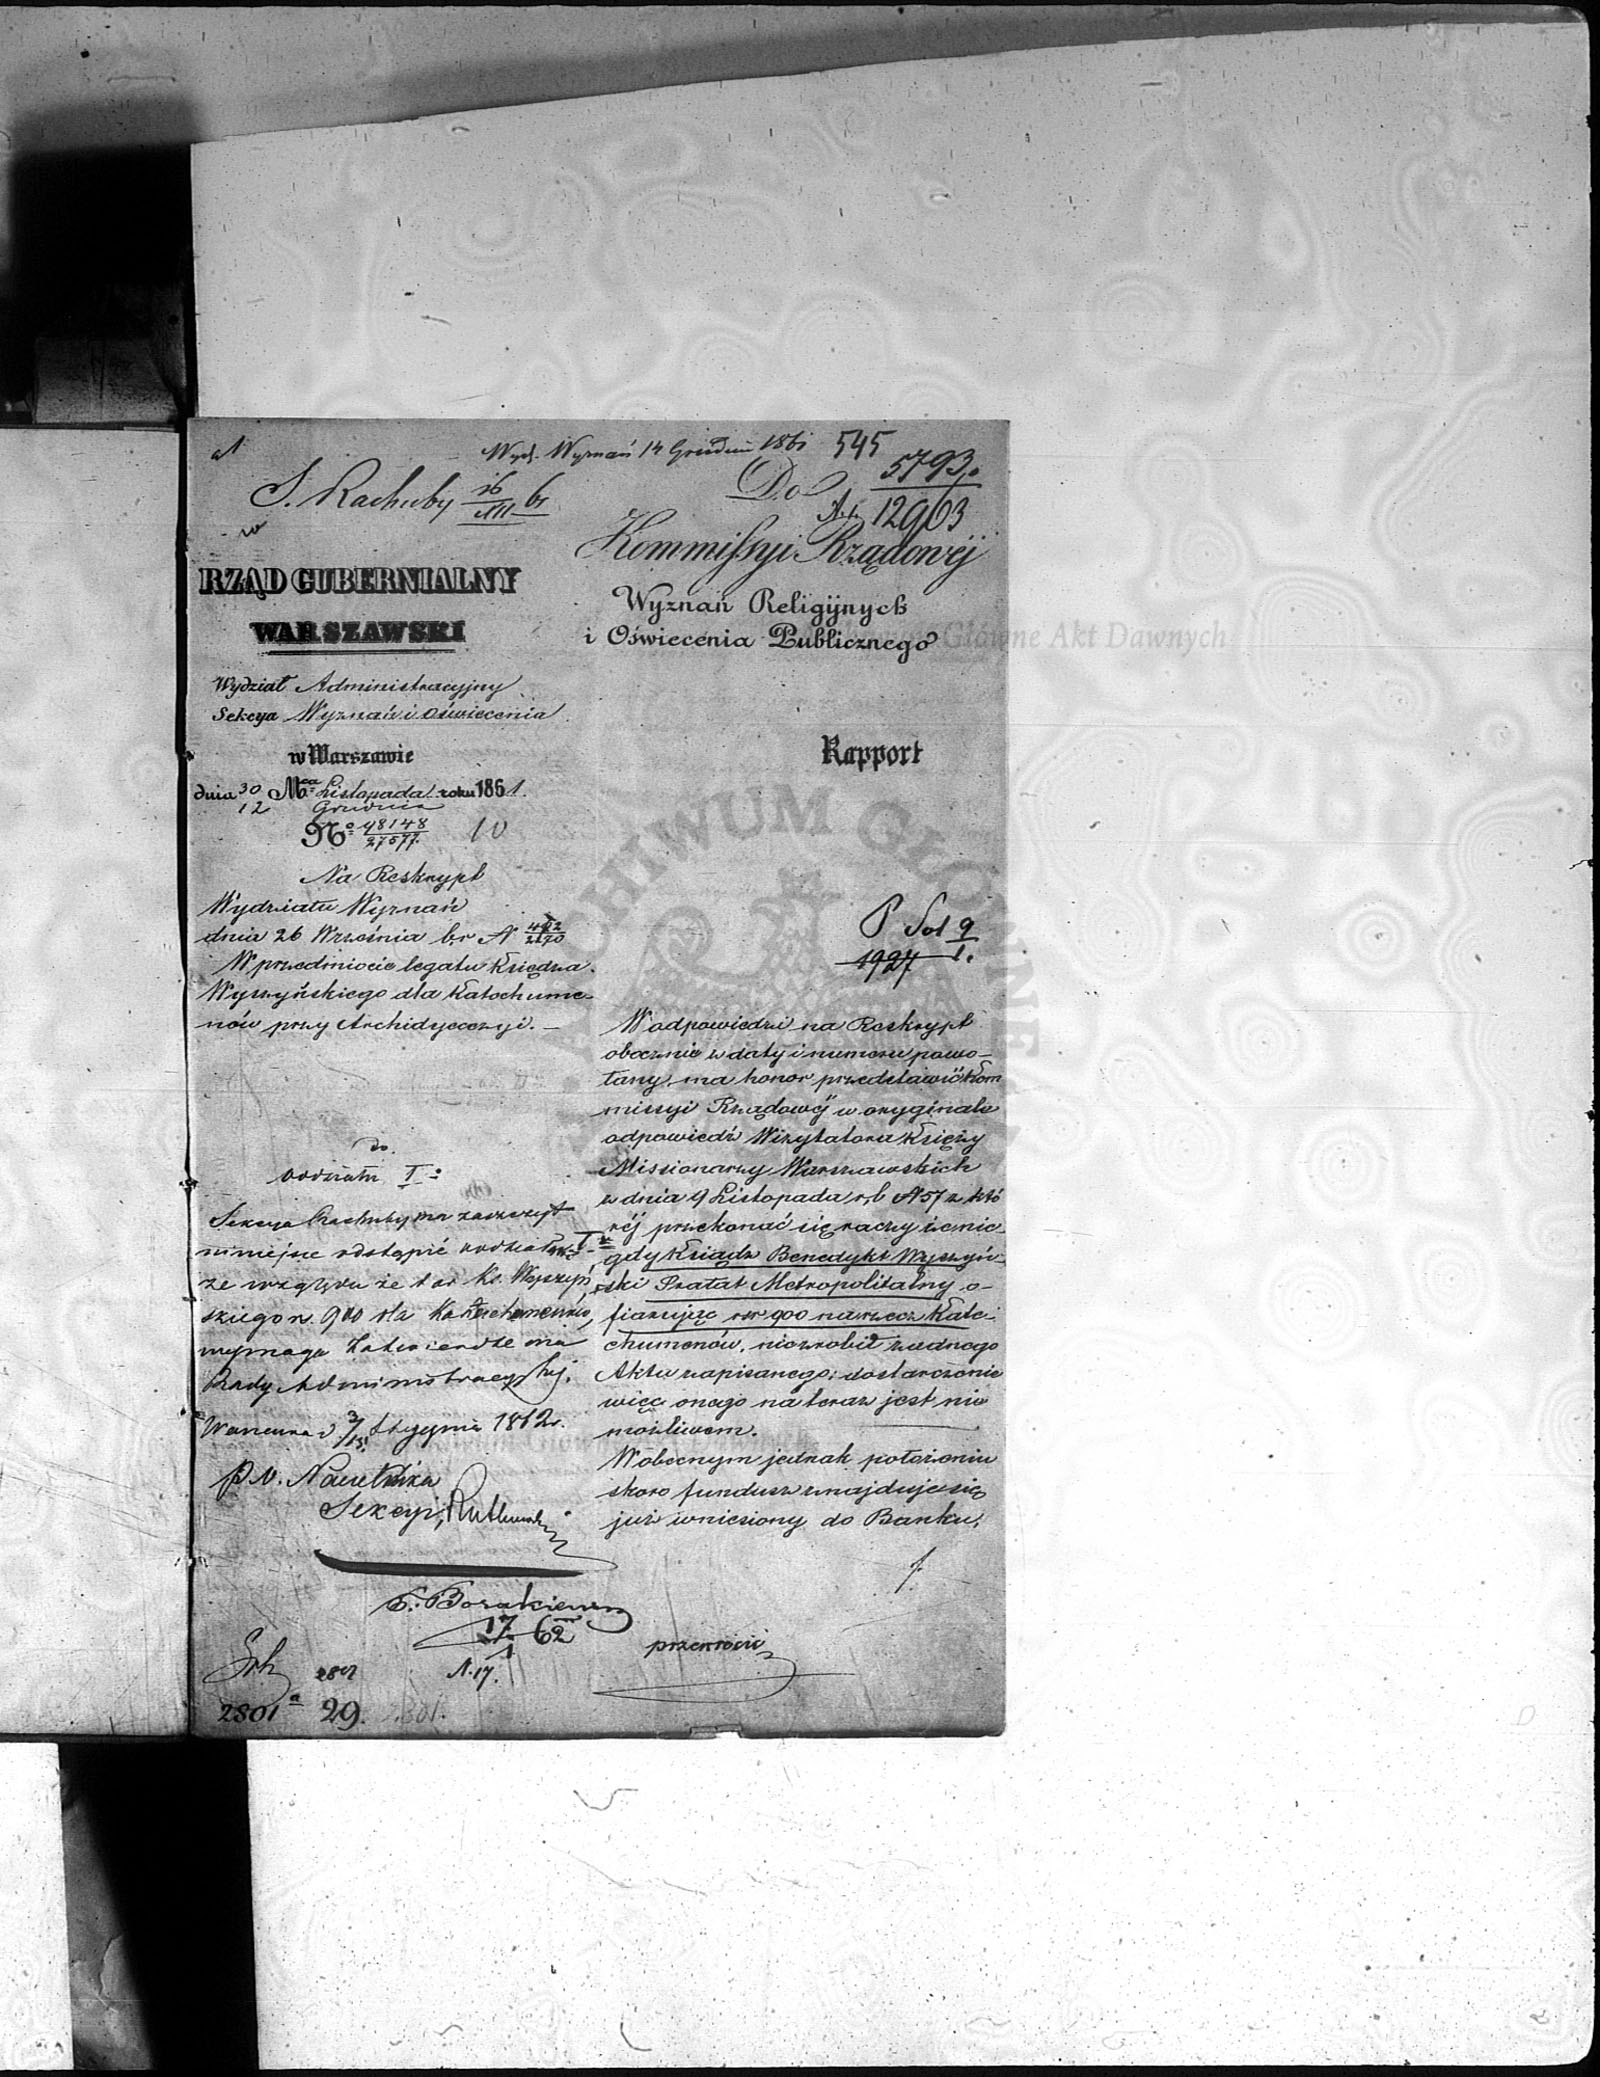 Wydz. Wyznań 14 Grudnia 1861 545
S. Rachuby 16/XII 61
Do
5793.
12963
Kommissyi Rządowéj
Wyznań Religijnych
i Oświecenia Publicznego
RZĄD GUBERNIALNY
WARSZAWSKI
Wydział Administracyjny
Sekcya Wyznań i Oświecenia
w Warszawie
dnia 30/12 Mca Listopada/Grudnia roku 1861.
No 48148/27577. 10
Rapport
Na Reskrypt
Wydziału Wyznań
dnia 26 Września b.r. N
W przedmiocie legatu Księdza
Wyszyńskiego dla Katechume-
nów przy Archidyecezyi. —
1927
W odpowiedzi na Reskrypt
obocznie z daty i numeru powo-
łany, ma honor przedstawić Kom
missyi Rządowéj w oryginale
odpowiedź Wizytatora Księży
Missionarzy Warszawskich
z dnia 9 Listopada r.b. N 57 z któ
réj przekonać się raczy iż nie-
gdy Ksiądz Benedykt Wyszyń-
ski Prałat Metropolitalny o-
fiarując rsr 900 na rzecz Kate-
chumenów, niezrobił żadnego
Aktu zapisanego; dostarczenie
więc onego na teraz jest nie
możliwem.
W obecnym jednak położeniu
skoro fundusz znajduje się
już wniesiony do Banku,
przewrócić
do
Oddziału I:
Sekcya Rachuby ma zaszczyt
niniejsze odstąpić Oddziałowi I
ze względu że dar Ks. Wyszyń-
skiego r. 900 dla Katechumenów,
wymaga Zatwierdzenia
Rady Administracyjnej.
Warszawa d. 3/15 Stycznia 1862 r.
p.o. Naczelnika
Sekcyi,
17/1 62
N. 17.
2801 a 29. 2801.
ARCHIWUM GŁÓWNE
Główne Akt Dawnych